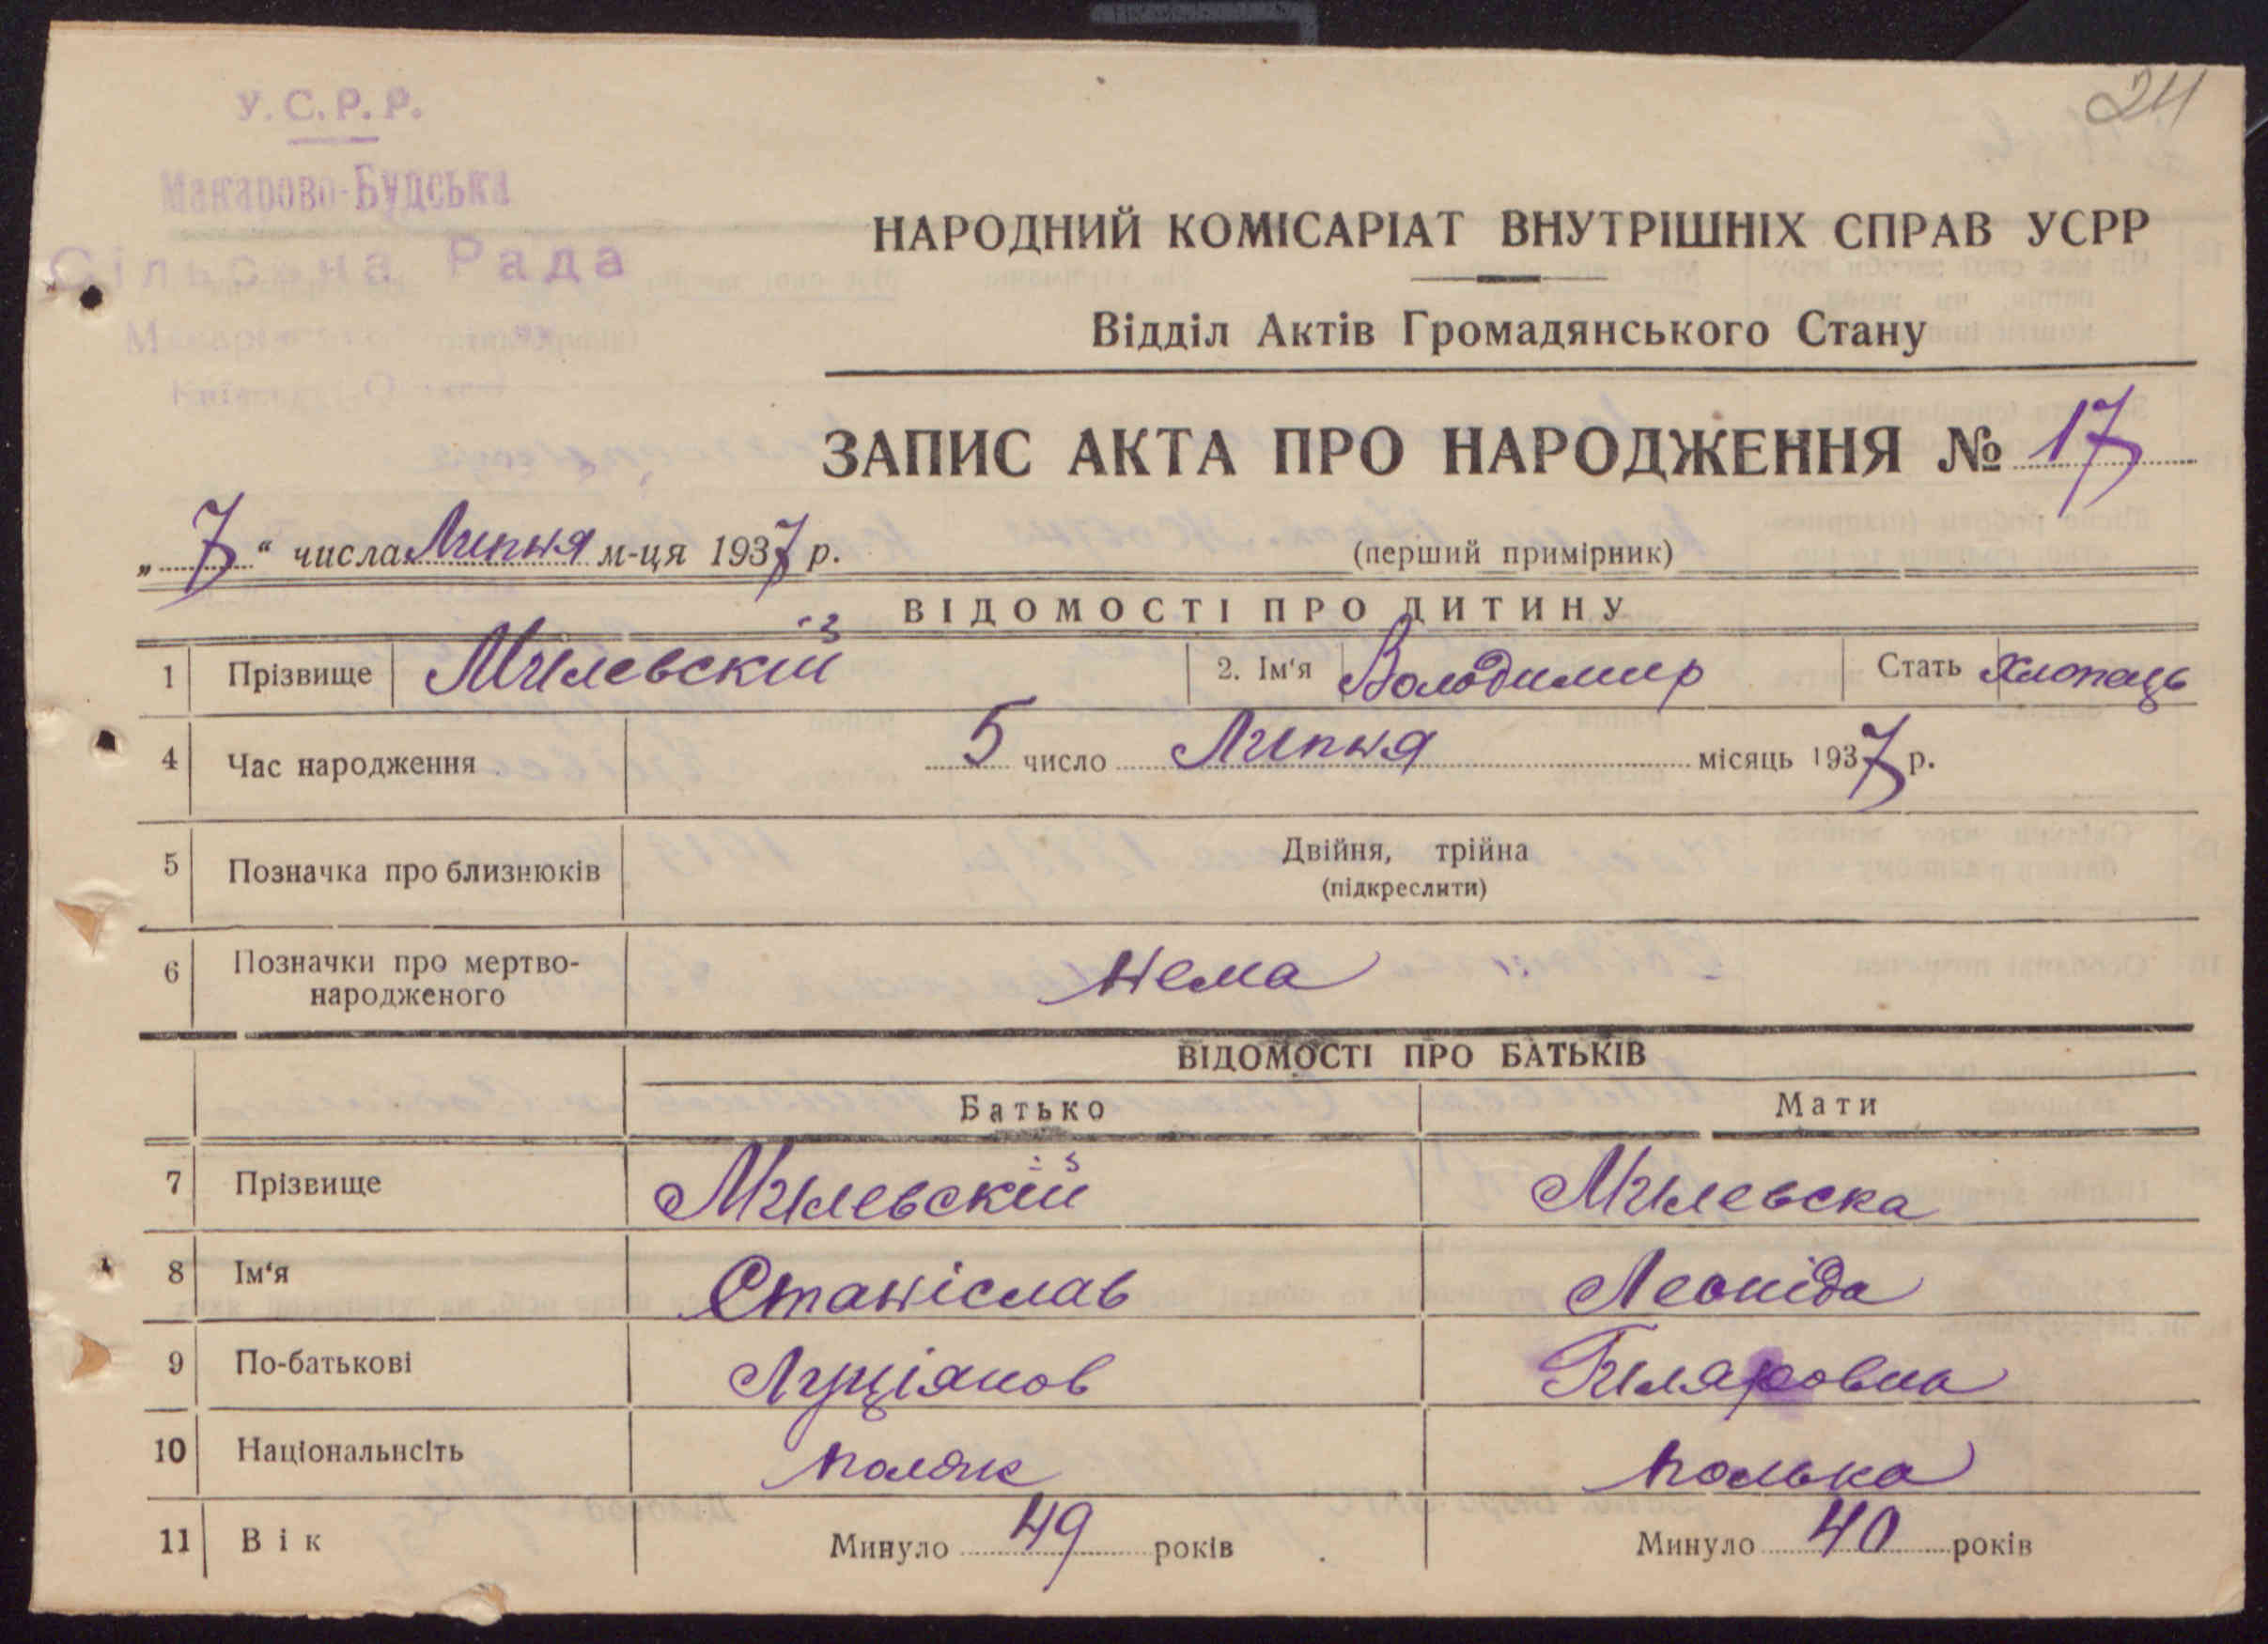 24
У.С.Р.Р.
Макарово-Будська
Сільська Рада
НАРОДНИЙ КОМІСАРІАТ ВНУТРІШНІХ СПРАВ УСРР
Відділ Актів Громадянського Стану
ЗАПИС АКТА ПРО НАРОДЖЕННЯ № 17
„7“ числа Липня м-ця 1937 р.
(перший примірник)
ВІДОМОСТІ ПРО ДИТИНУ
1 Прізвище Милевскій 2. Ім'я Володимир Стать хлопець
4 Час народження 5 число Липня місяць 1937 р.
5 Позначка про близнюків Двійня, трійна
(підкреслити)
6 Позначки про мертво-
народженого нема
ВІДОМОСТІ ПРО БАТЬКІВ
Батько Мати
7 Прізвище Милевскій Милевска
8 Ім'я Станіслав Леоніда
9 По-батькові Луціянов Гиляровна
10 Національнсіть поляк полька
11 Вік Минуло 49 років Минуло 40 років